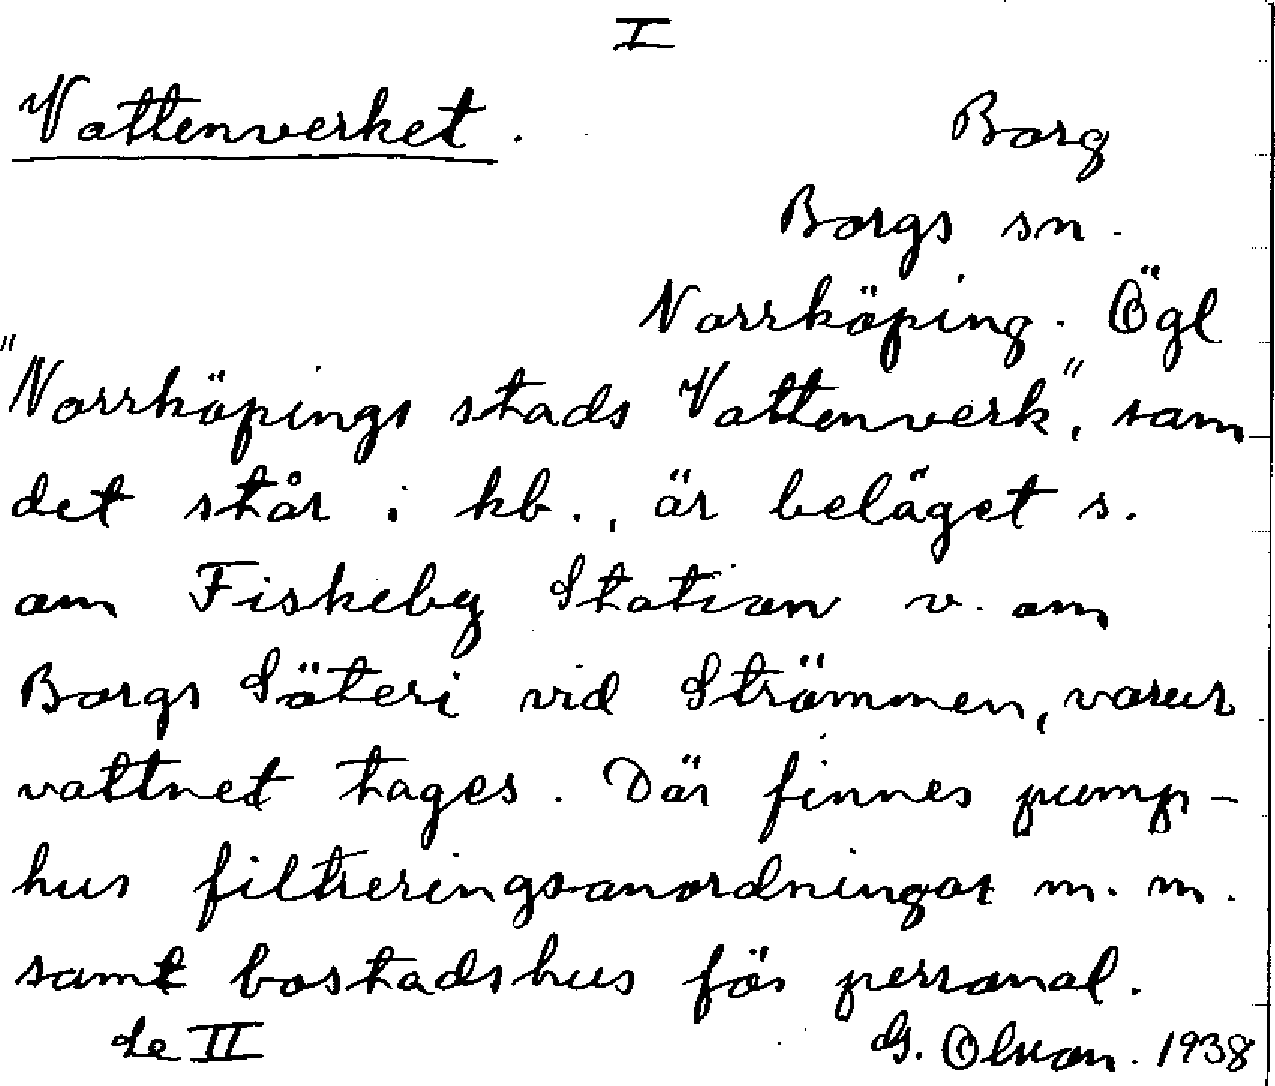 I
Vattenverket.
Borg
Borgs sn.
Norrköping. Ögl
"Norrköpings stads Vattenverk", som
det står i kb., är beläget s.
om Fiskeby Station v. om
Borgs Säteri vid Strömmen, varur
vattnet tages. Där finnes pump-
hus filtreringsanordningar m. m.
samt bostadshus för personal.
Se II
G. Olson. 1938